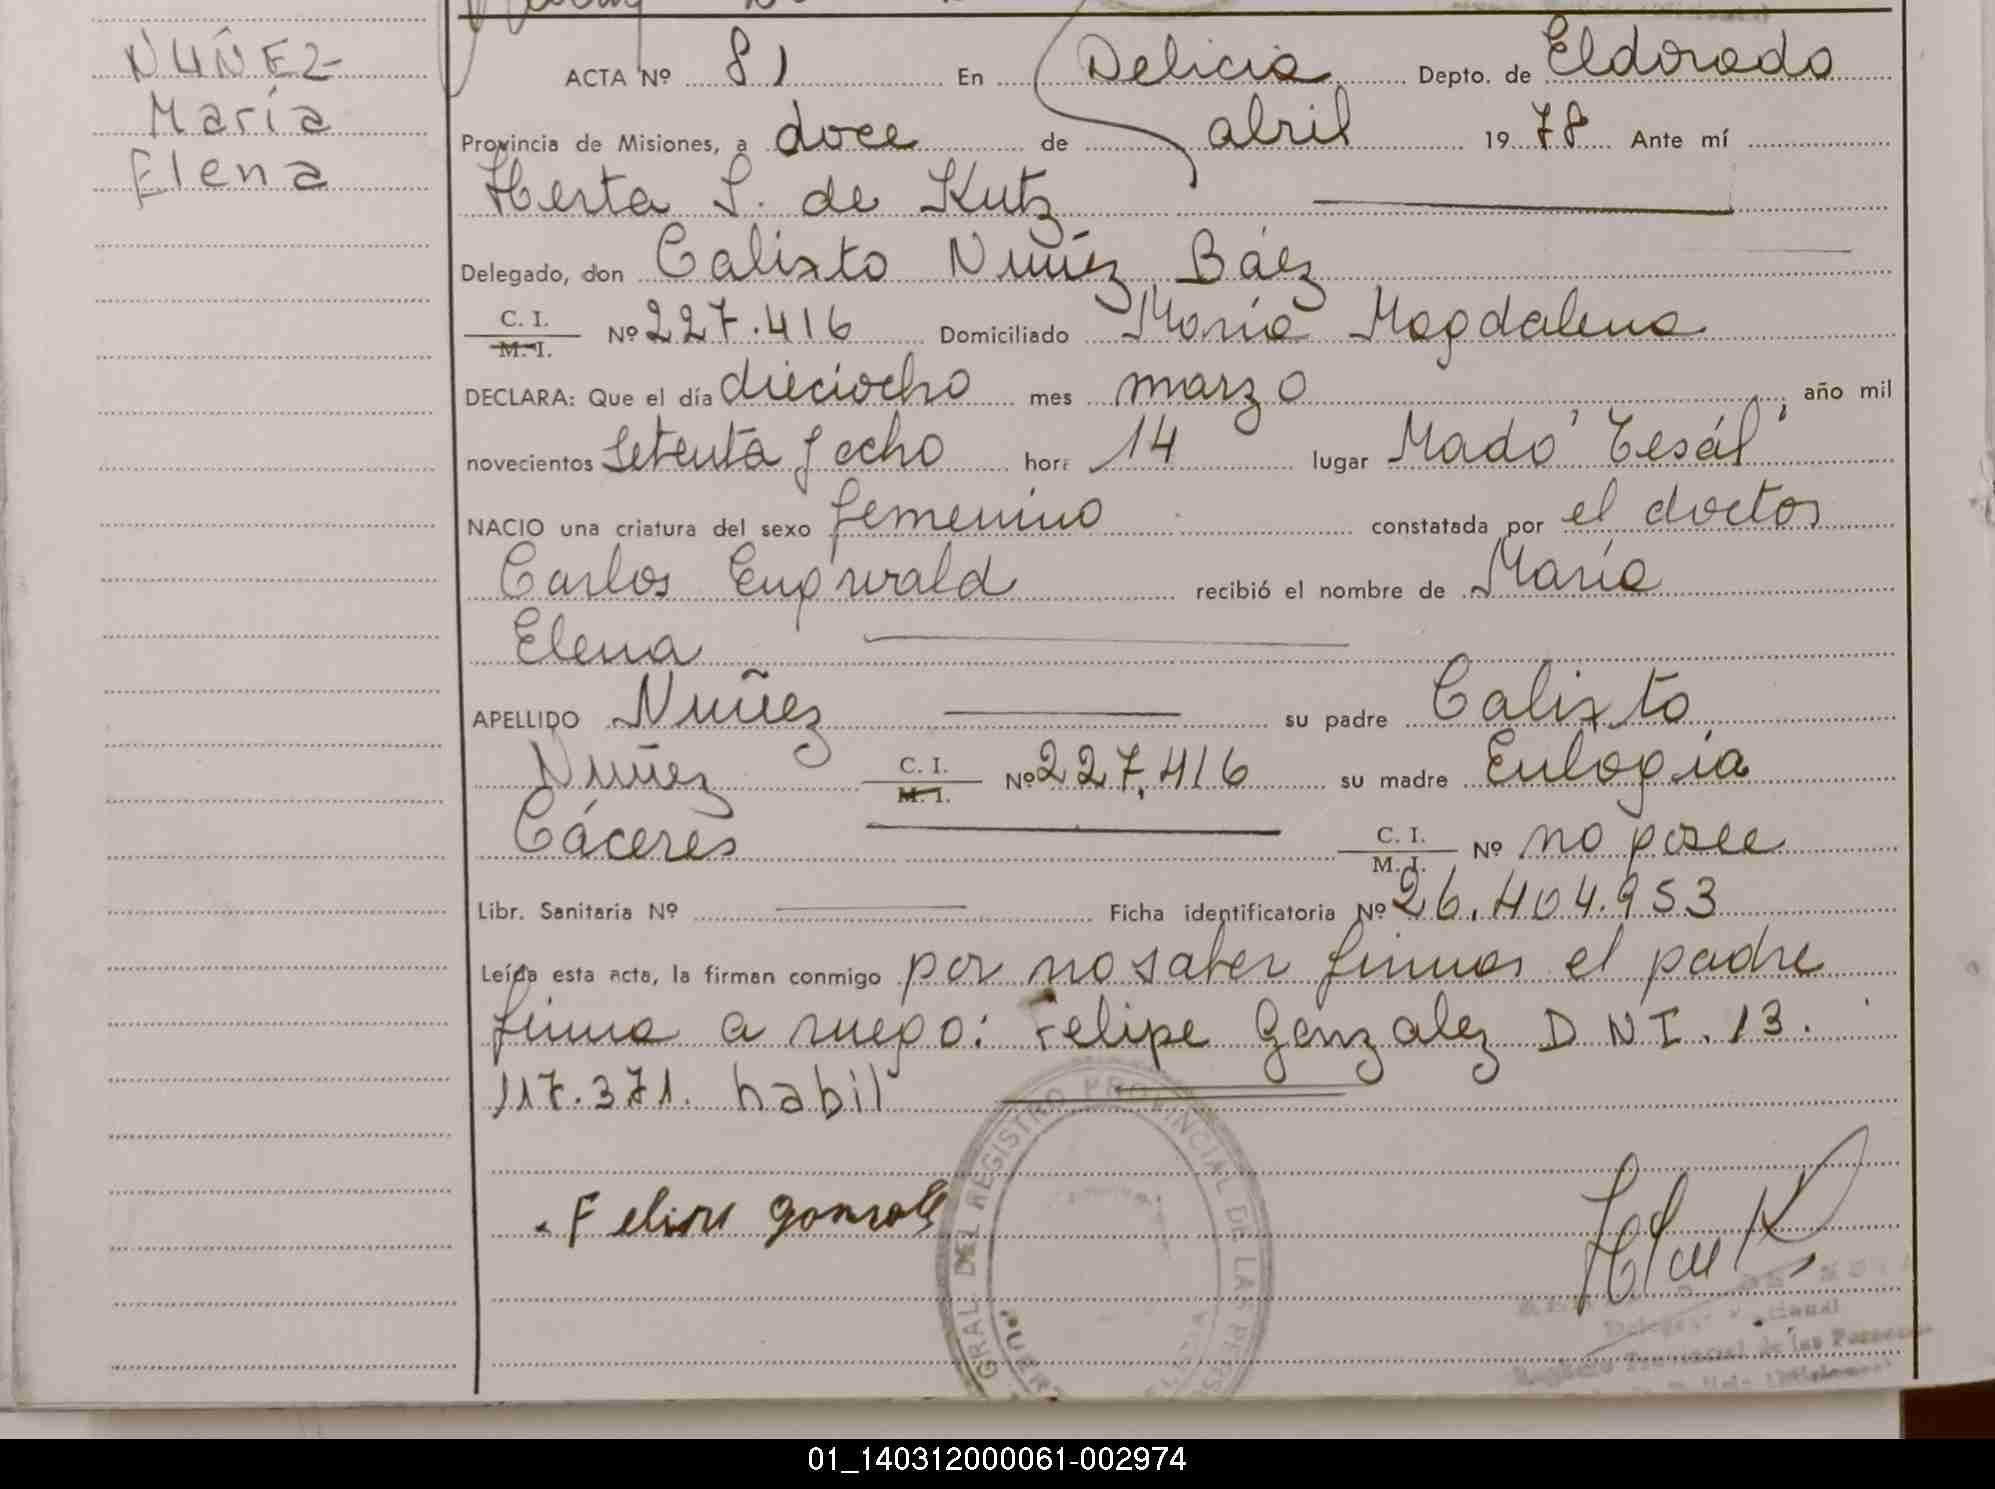 NUÑEZ
María
Elena
ACTA Nº 81 En Delicia Depto. de Eldorado
Provincia de Misiones, a doce de abril 1978 Ante mí
Herta S. de Kutz
Delegado, don Calixto Nuñez Báez
C. I. M. I. Nº 227.416 Domiciliado María Magdalena
DECLARA: Que el día dieciocho mes marzo, año mil
novecientos setenta y ocho hora 14 lugar Mado "Cesál"
NACIO una criatura del sexo femenino constatada por el doctor
Carlos Engwald recibió el nombre de María
Elena
APELLIDO Nuñez su padre Calixto
Nuñez C. I. M. I. Nº 227,416 su madre Eulogia
Cáceres C. I. M. I. Nº no posee
Libr. Sanitaria Nº Ficha identificatoria Nº 26.404.953
Leída esta acta, la firman conmigo por no saber firmar el padre
firma a ruego: Felipe Gonzalez DNI. 13.
117.371. habil
GRAL. DEL REGISTRO PROVINCIAL DE LAS
Felipe gonzale
01_140312000061-002974